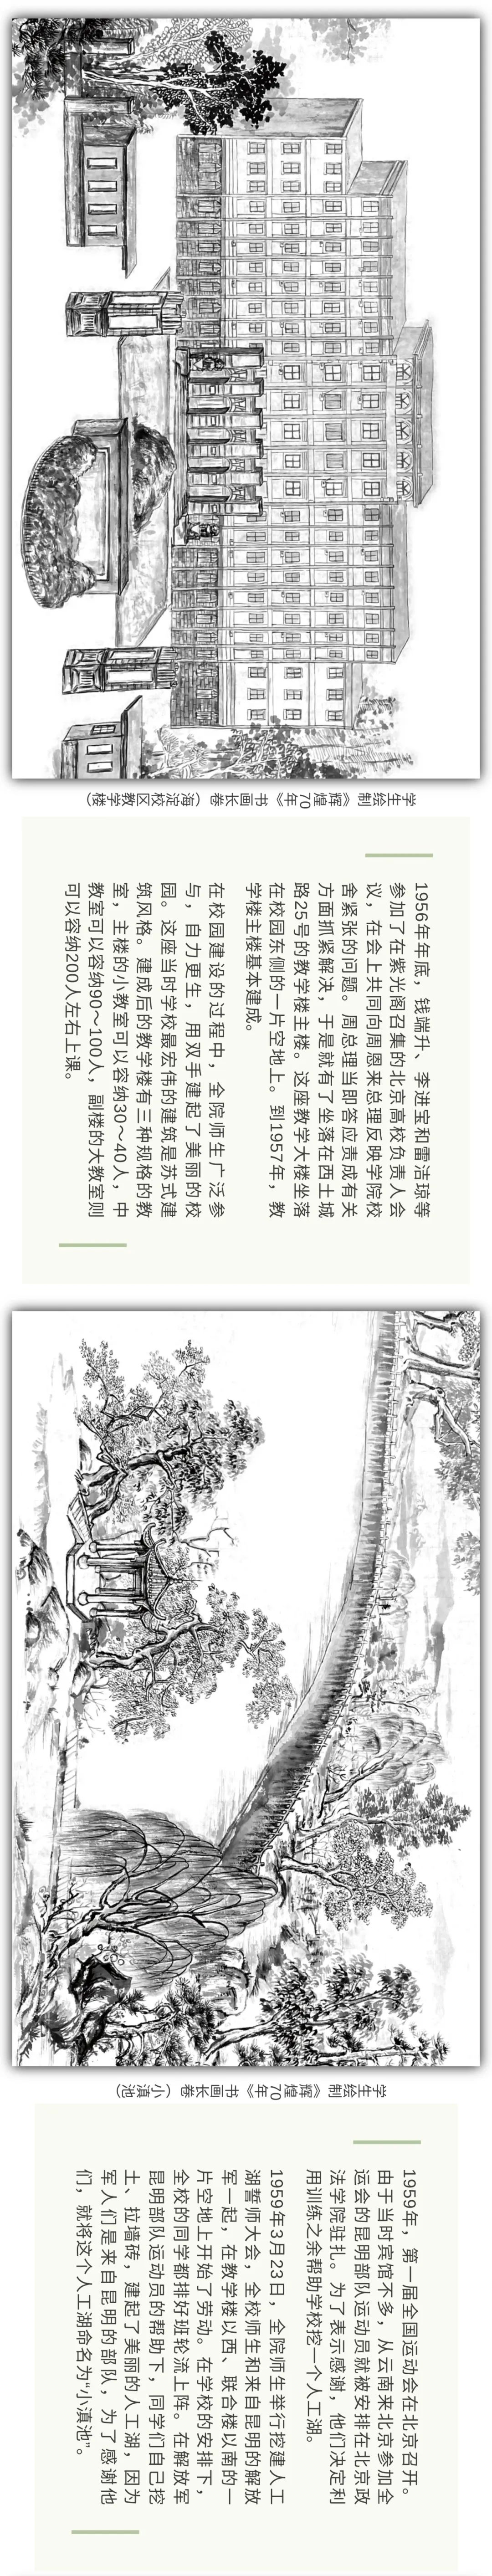 学生绘制《辉煌70年》书画长卷（海淀校区教学楼）
1956年年底，钱端升、李进宝和雷洁琼等
参加了在紫光阁召集的北京高校负责人会
议，在会上共同向周恩来总理反映学院校
舍紧张的问题。周总理当即答应责成有关
方面抓紧解决，于是就有了坐落在西土城
路25号的教学楼主楼。这座教学大楼坐落
在校园东侧的一片空地上。到1957年，教
学楼主楼基本建成。
在校园建设的过程中，全院师生广泛参
与，自力更生，用双手建起了美丽的校
园。这座当时学校最宏伟的建筑是苏式建
筑风格。建成后的教学楼有三种规格的教
室，主楼的小教室可以容纳30～40人，中
教室可以容纳90～100人，副楼的大教室则
可以容纳200人左右上课。
学生绘制《辉煌70年》书画长卷（小滇池）
1959年，第一届全国运动会在北京召开。
由于当时宾馆不多，从云南来北京参加全
运会的昆明部队运动员就被安排在北京政
法学院驻扎。为了表示感谢，他们决定利
用训练之余帮助学校挖一个人工湖。
1959年3月23日，全院师生举行挖建人工
湖誓师大会，全校师生和来自昆明的解放
军一起，在教学楼以西、联合楼以南的一
片空地上开始了劳动。在学校的安排下，
全校的同学都排好班轮流上阵。在解放军
昆明部队运动员的帮助下，同学们自己挖
土、拉墙砖，建起了美丽的人工湖，因为
军人们是来自昆明的部队，为了感谢他
们，就将这个人工湖命名为“小滇池”。